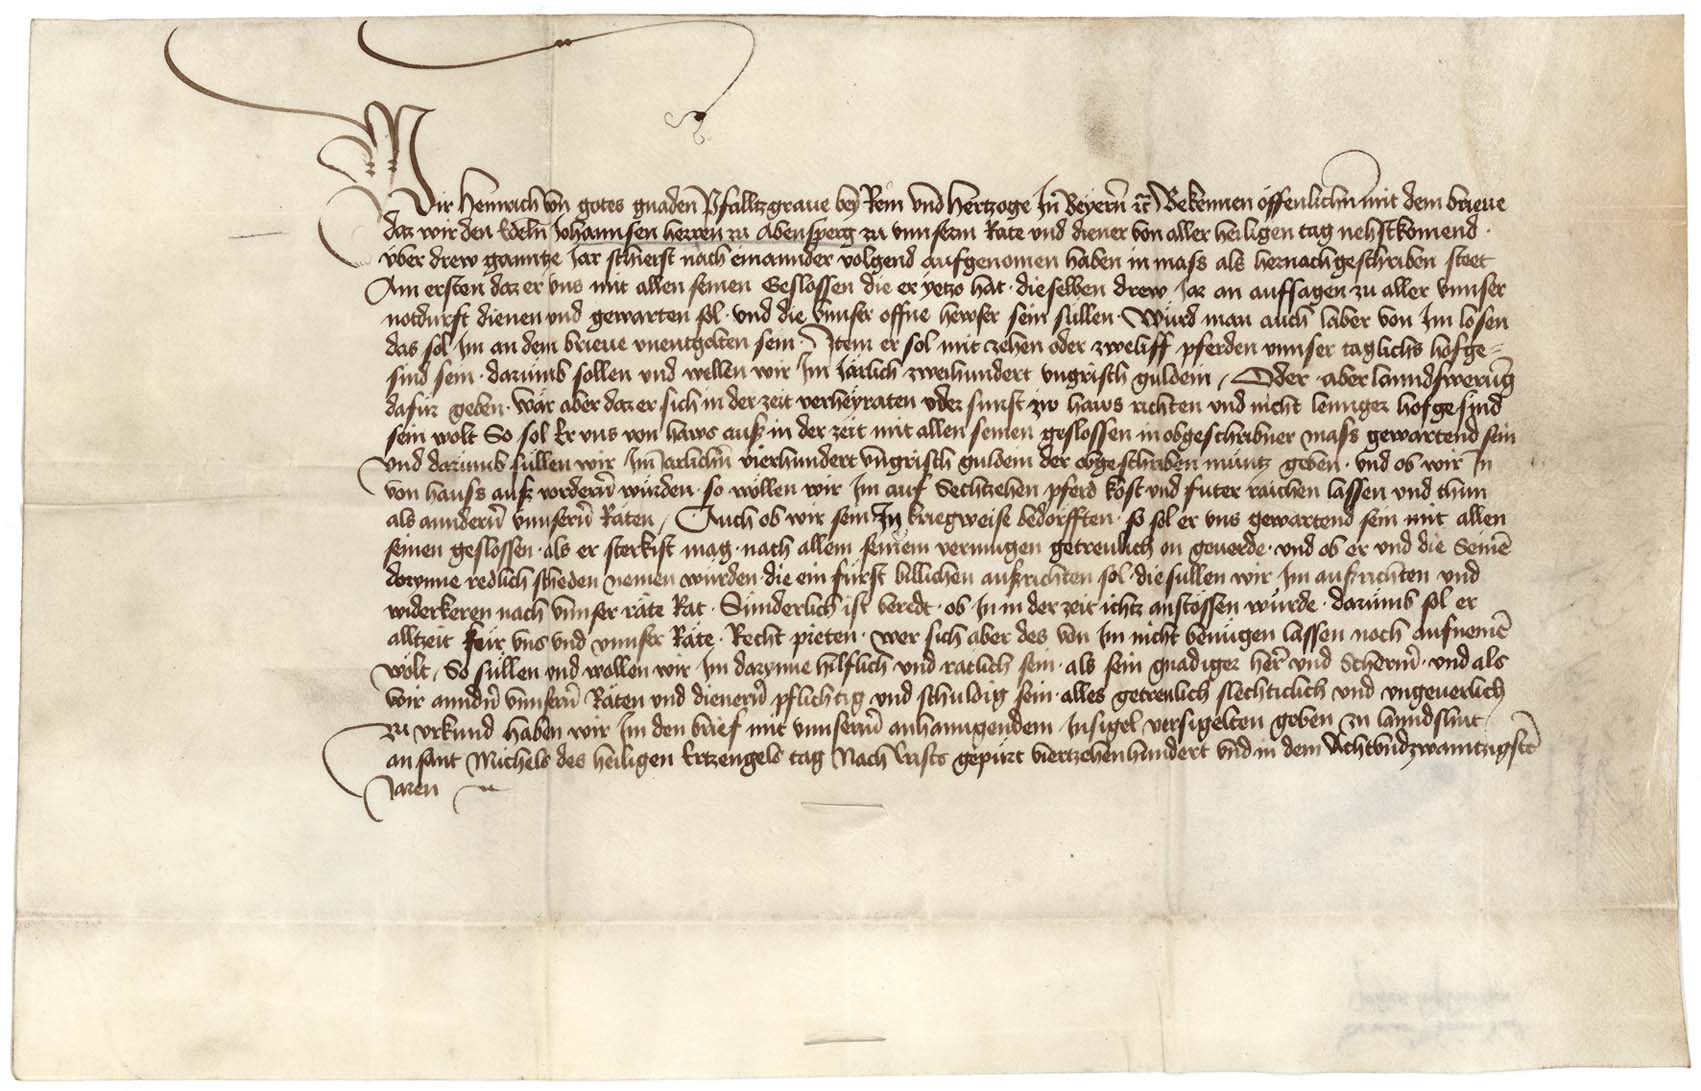 Wir Heinrich von gotes gnaden Pfalltzgraue bey Rein und Hertzoge In Beyern etc Bekennen offenlichn mit dem brieue
daz wir den Edeln Johannsen herren zu Abensperg zu unnserm Rate und diener von aller heiligen tag nehstkomend ·
über drew ganntze Jar schierst nach einannder volgend aufgenomen haben in mass als hernachgeschriben steet
Am ersten daz er uns mit allen seinen Geslossen die er yetzo hat · dieselben drew Jar an auffsagen zu aller unnser
notdurft dienen und gewarten sol · und die unnser offne hewser sein süllen · Würd man auch laber von Im losen
das sol Im an dem brieue unentgolten sein · Item er sol mit zehen oder zweliff pferden unnser taglichs hofge=
sind sein · darumb sollen und wellen wir Im Järlich zweihundert ungrisch guldein / Oder aber lanndswerung
dafür geben · Wär aber daz er sich in der zeit verheyraten oder sunst zu haws richten und nicht lennger hofgesind
sein wolt So sol Er uns von haws auß in der zeit mit allen seinen geslossen in obgeschribner mass gewartend sein
und darumb süllen wir Im Jarlichn vierhundert ungrisch guldein der obgeschriben müntz geben · und ob wir In
von hauss auß vordern würden · so wöllen wir Im auf Sechtzehen pferd kost und futer raichen lassen und thun
als anndern unnsern Räten / Auch ob wir sein In kriegweise bedorfften · so sol er uns gewartend sein mit allen
seinen geslossen · als er sterkist mag · nach allem seinem vermugen getreulich on geuerde · und ob er und die Seinen
dorynne redlich scheden nemen würden · die ein fürst billichen außrichten sol · die sullen wir Im außrichten und
widerkeren nach unnser räte Rat · Sünderlich ist beredt · ob In in der zeit ichtz anstössen würde · darumb sol er
alltzeit für uns und unnser Räte · Recht pieten · wer sich aber des von Im nicht benügen lassen noch aufnemen
wolt / So süllen und wollen wir Im dorynne hilflich und rätlich sein · als sein gnadiger herr und Scherm · und als
wir anndern unnsern Räten und dienern pflichtig und schuldig sein · alles getreulich slechticlich und ungeuerlich
Zu urkund haben wir Im den brief mit unnserm anhanngendem Insigel versigelten geben zu lanndshut
an sant Michels des heiligen Ertzengels tag Nach Crists gepürt viertzehenhundert und in dem Achtundzwaintzigsten
Jaren